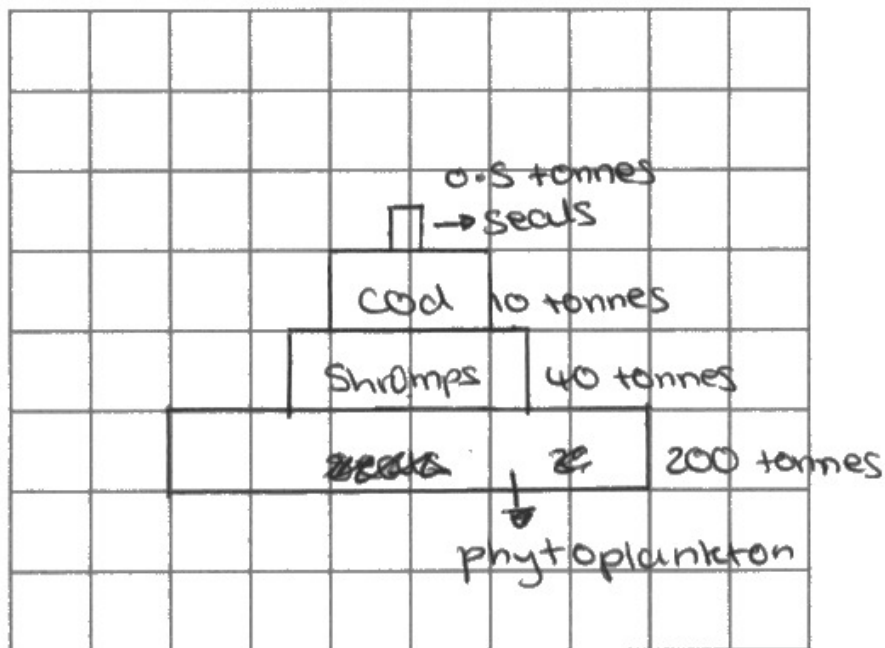 0.5 tonnes
→ seals
cod 10 tonnes
Shrimps 40 tonnes
200 tonnes
phytoplankton